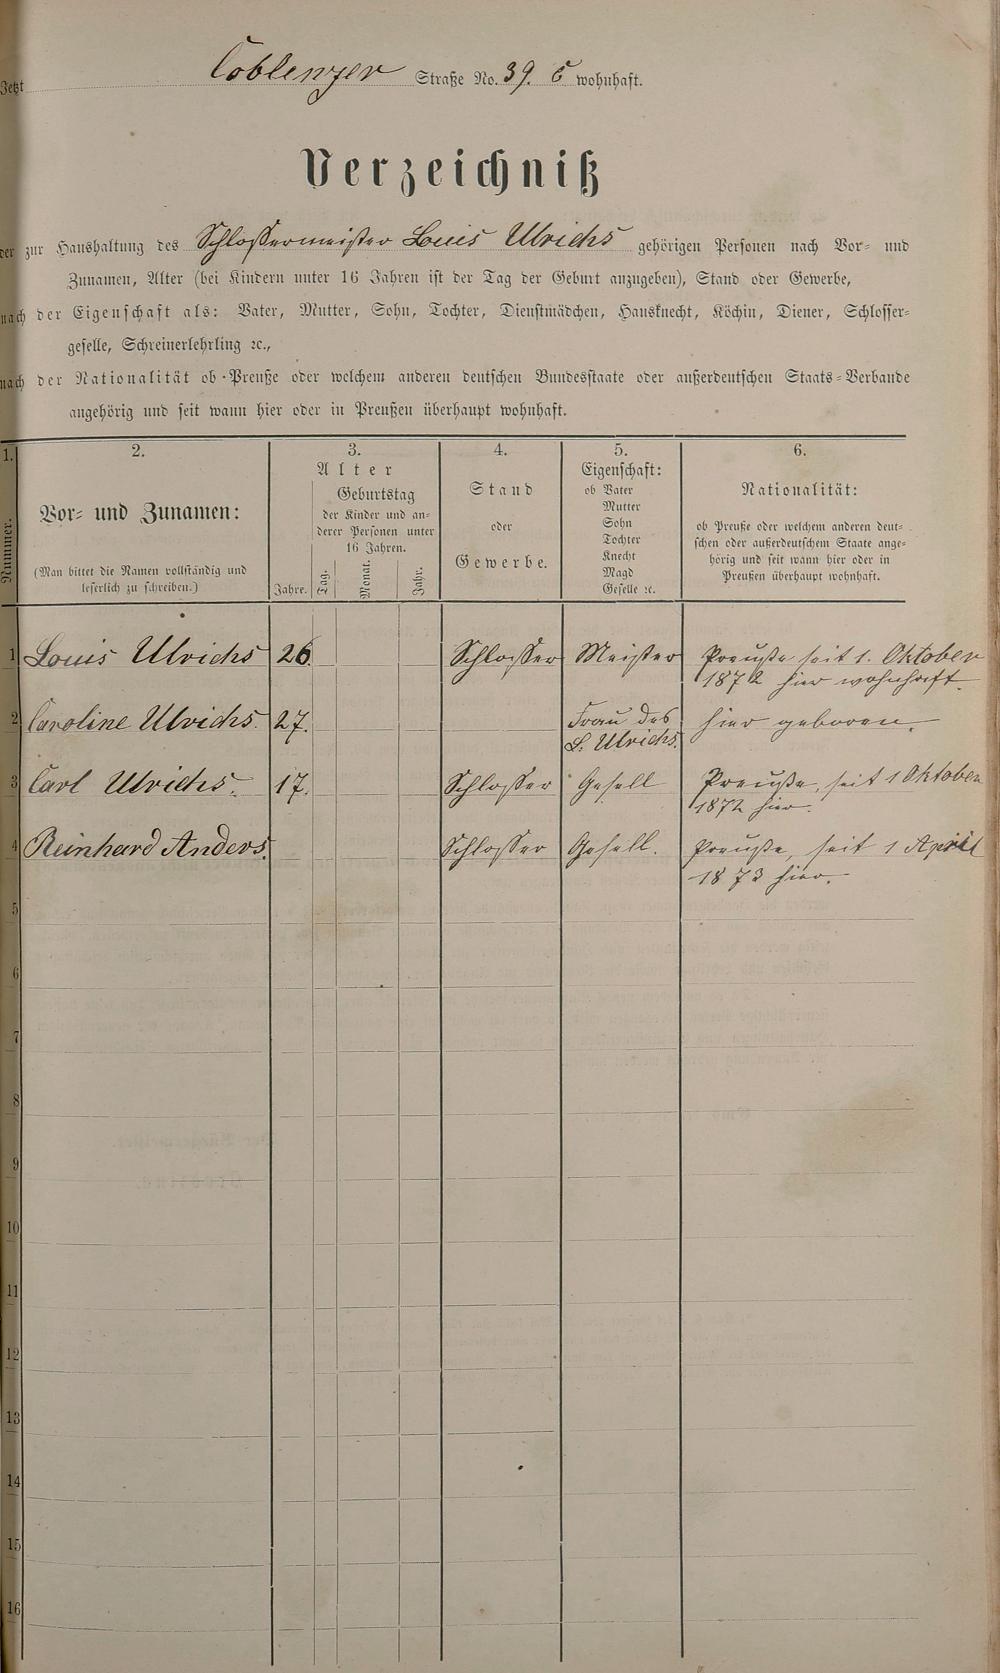 Jetzt Coblenzer Straße No. 39. c wohnhaft.
Verzeichniß
der zur Haushaltung des Schlossermeister Louis Ulrichs gehörigen Personen nach Vor- und
Zunamen, Alter (bei Kindern unter 16 Jahren ist der Tag der Geburt anzugeben), Stand oder Gewerbe,
nach der Eigenschaft als: Vater, Mutter, Sohn, Tochter, Dienstmädchen, Hausknecht, Köchin, Diener, Schlosser-
geselle, Schreinerlehrling ꝛc.,
nach der Nationalität ob Preuße oder welchem anderen deutschen Bundesstaate oder außerdeutschen Staats-Verbande
angehörig und seit wann hier oder in Preußen überhaupt wohnhaft.
1.
Nummer.
2.
Vor- und Zunamen:
(Man bittet die Namen vollständig und
leserlich zu schreiben.)
3.
Alter
Jahre.
Geburtstag
der Kinder und an-
derer Personen unter
16 Jahren.
Tag.
Monat.
Jahr.
4.
Stand
oder
Gewerbe.
5.
Eigenschaft:
ob Vater
Mutter
Sohn
Tochter
Knecht
Magd
Geselle ꝛc.
6.
Nationalität:
ob Preuße oder welchem anderen deut-
schen oder außerdeutschem Staate ange-
hörig und seit wann hier oder in
Preußen überhaupt wohnhaft.
1 Louis Ulrichs 26 Schlosser Meister Preuße seit 1. Oktober
1872 hier wohnhaft.
2 Caroline Ulrichs. 27. Frau des hier geboren.
L. Ulrichs.
3 Carl Ulrichs. 17. Schlosser Gesell Preuße, seit 1 Oktober
1872 hier.
4 Reinhard Anders. Schlosser Gesell. Preuße, seit 1 April
1873 hier.
5
6
7
8
9
10
11
12
13
14
15
16